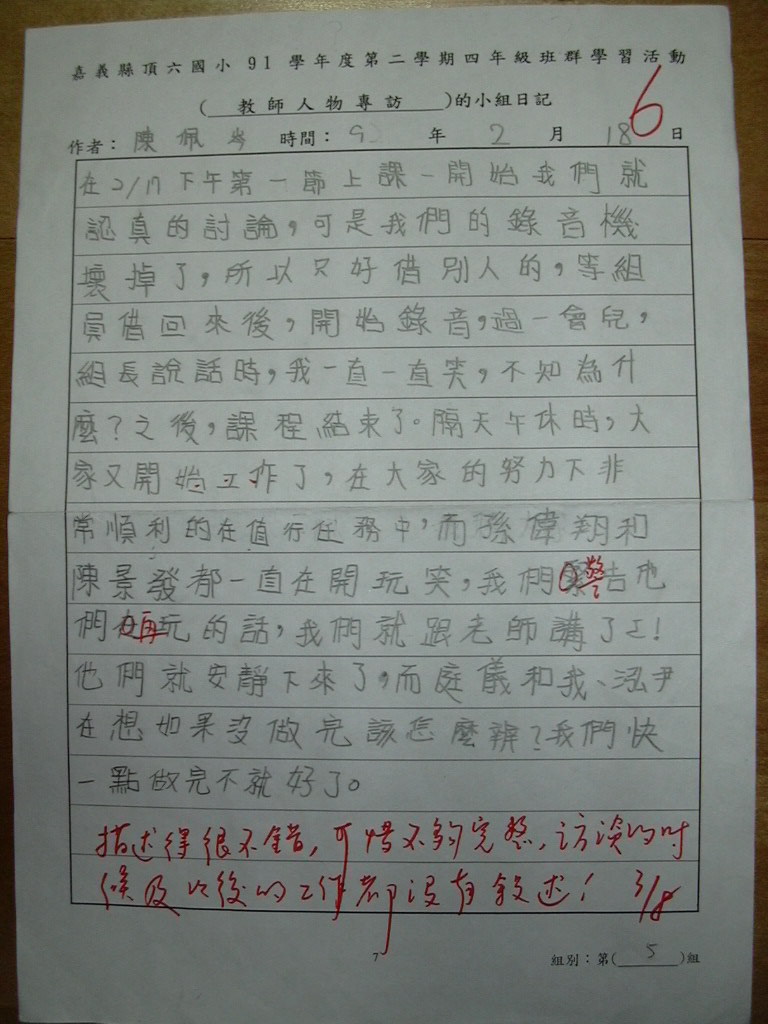 嘉義縣頂六國小 91 學年度第二學期四年級班群學習活動
( 教師人物專訪 )的小組日記
6
作者： 陳佩岑 時間： 92 年 2 月 18 日
在2/17下午第一節上課一開始我們就
認真的討論，可是我們的錄音機
壞掉了，所以只好借別人的，等組
員借回來後，開始錄音，過一會兒，
組長說話時，我一直一直笑，不知為什
麼？之後，課程結束了。隔天午休時，大
家又開始工作了，在大家的努力下非
常順利的在值行任務中，而孫偉翔和
陳景發都一直在開玩笑，我們警告他
們再玩的話，我們就跟老師講了ㄛ！
他們就安靜下來了，而庭儀和我、泓尹
在想如果沒做完該怎麼辨？我們快
一點做完不就好了。
描述得很不錯，可惜不夠完整，訪談的時
候及以後的工作都沒有敘述！ 3/8
7
組別：第( 5 )組